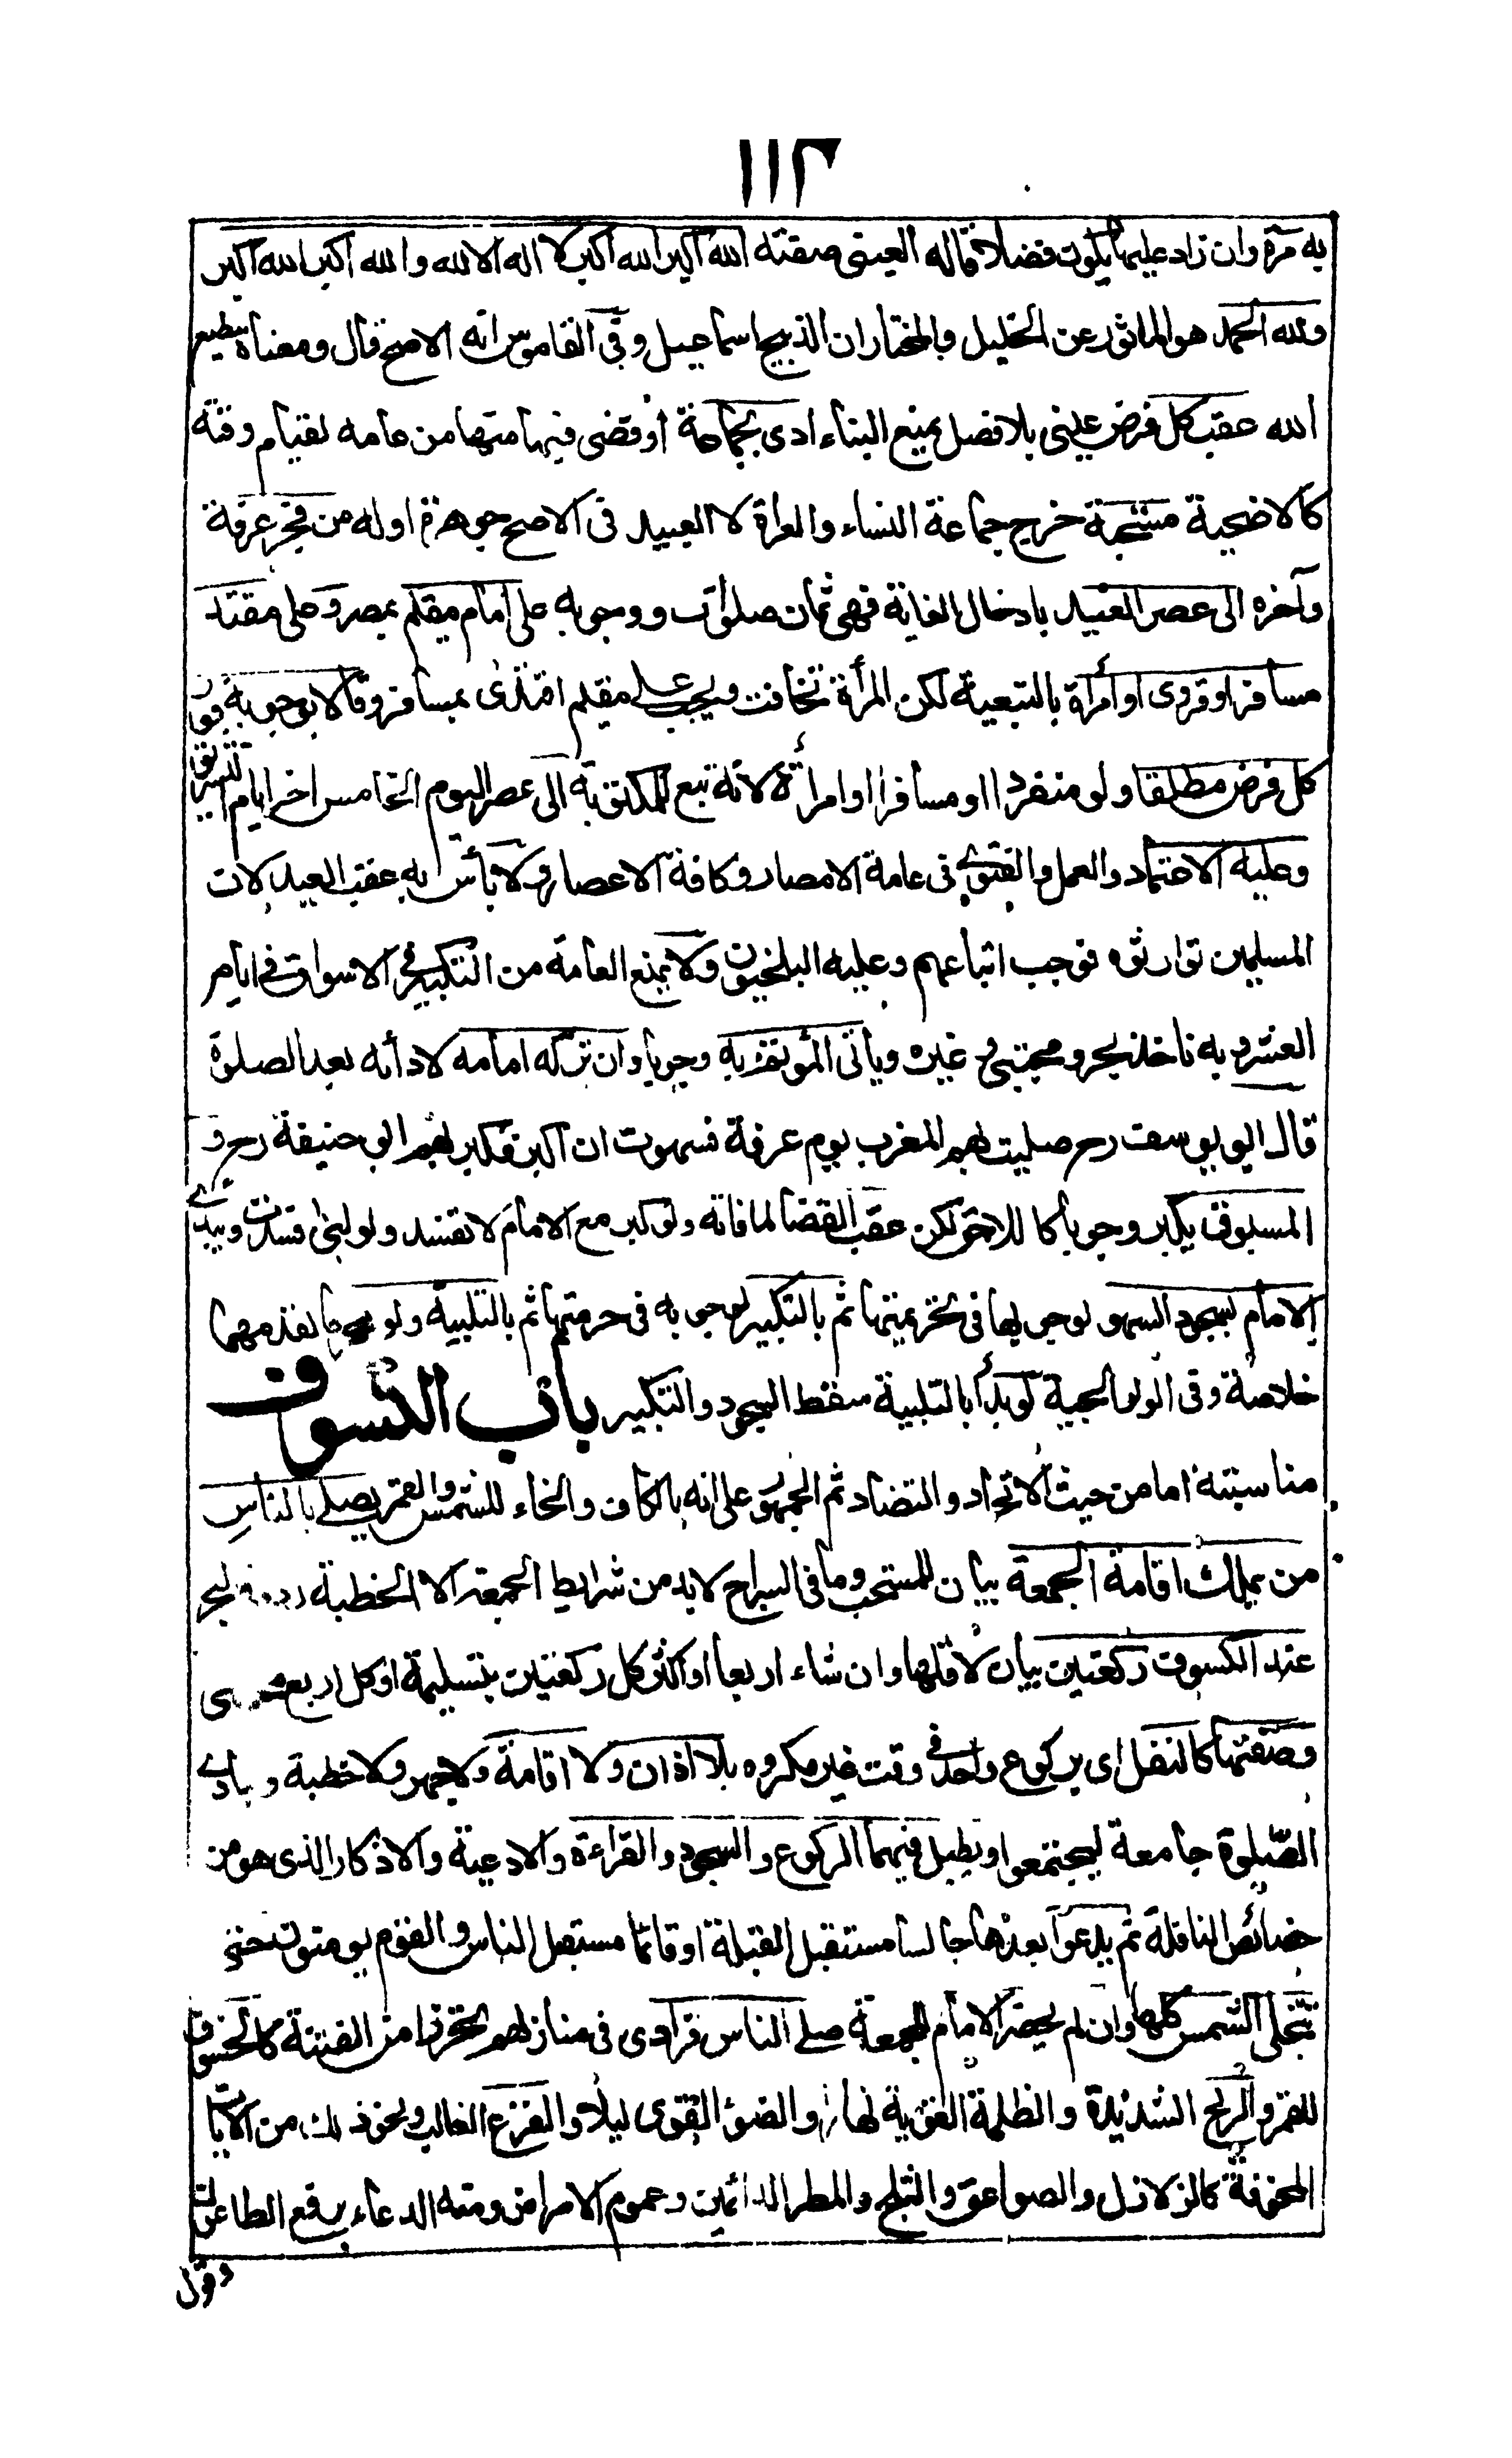 ١١٢
به مرة وان زاد عليها يكون فضلا قاله العينى صفته الله اكبر الله اكبر لا اله الا الله والله اكبر الله اكبر
ولله الحمد هو الماثور عن الخليل والمختار ان الذبيح اسماعيل وفى القاموس انه الاصح قال ومعناه مطيع
الله عقب كل فرض عينى بلا فصل يمنع البناء ادى بجماعة او قضى فيها منها من عامه لقيام وقته
كالاضحية مستحبة خرج جماعة النساء والعراة لا العبيد فى الاصح جوهرة اوله من فجر عرفة
وآخره الى عصر العيد بادخال الغاية فهى ثمان صلوات ووجوبه على امام مقيم بمصر وعلى مقتد
مسافر او قروى او امرأة بالتبعية لكن المرأة تخافت ويجب على مقيم اقتدى بمسافر وقالا بوجوبه فور
كل فرض مطلقا ولو منفردا او مسافرا او امرأة لانه تبع للمكتوبة الى عصر اليوم الخامس اخر ايام التشريق
وعليه الاعتماد والعمل والفتوى فى عامة الامصار وكافة الاعصار ولا بأس به عقب العيد لان
المسلمين توارثوه فوجب اتباعهم وعليه البلخيون ولا يمنع العامة من التكبير فى الاسواق فى ايام
العشر وبه ناخذ بحر ومجتبى وغيره ويأتى المؤتم به وجوبا وان تركه امامه لادائه بعد الصلوة
قال ابو يوسف رح صليت بهم المغرب يوم عرفة فسهوت ان اكبر فكبر بهم ابو حنيفة رح و
المسبوق يكبر وجوبا كاللاحق لكن عقب القضا لما فاته ولو كبر مع الامام لا تفسد ولو لبى فسدت ويبدء
الامام بسجود السهو لوجوبها فى تحريمتها ثم بالتكبير لوجوبه فى حرمتها ثم بالتلبية ولو محرما لعدمهما
خلاصة وفى الولوالجية لو بدأ بالتلبية سقط السجود والتكبير باب الكسوف
مناسبته اما من حيث الاتحاد او التضاد ثم الجمهور على انه بالكاف والخاء للشمس والقمر يصلى بالناس
من يملك اقامة الجمعة بيان للمستحب وما فى السراج لابد من شرايط الجمعة الا الخطبة رده فى البحر
عند الكسوف ركعتين بيان لاقلها وان شاء اربعا او اكثر كل ركعتين بتسليمة او كل اربع
وصفتها كالنفل اى بركوع واحد فى وقت غير مكروه بلا اذان ولا اقامة ولا جهر ولا خطبة وينادى
الصلوة جامعة ليجتمعوا ويطيل فيهما الركوع والسجود والقراءة والادعية والاذكار الذى هو من
خصائص النافلة ثم يدعوا بعدها جالسا مستقبل القبلة او قائما مستقبل الناس والقوم يومنون حتى
تنجلى الشمس كلها وان لم يحضر الامام للجمعة صلى الناس فرادى فى منازلهم تحرزا من الفتنة كالخسوف
للقمر والريح الشديدة والظلمة القوية نهارا والضوء القوى ليلا والفزع الغالب ونحو ذلك من الايات
المخوفة كالزلازل والصواعق والثلج والمطر الدائمين وعموم الامراض ومنه الدعاء برفع الطاعون
وقول